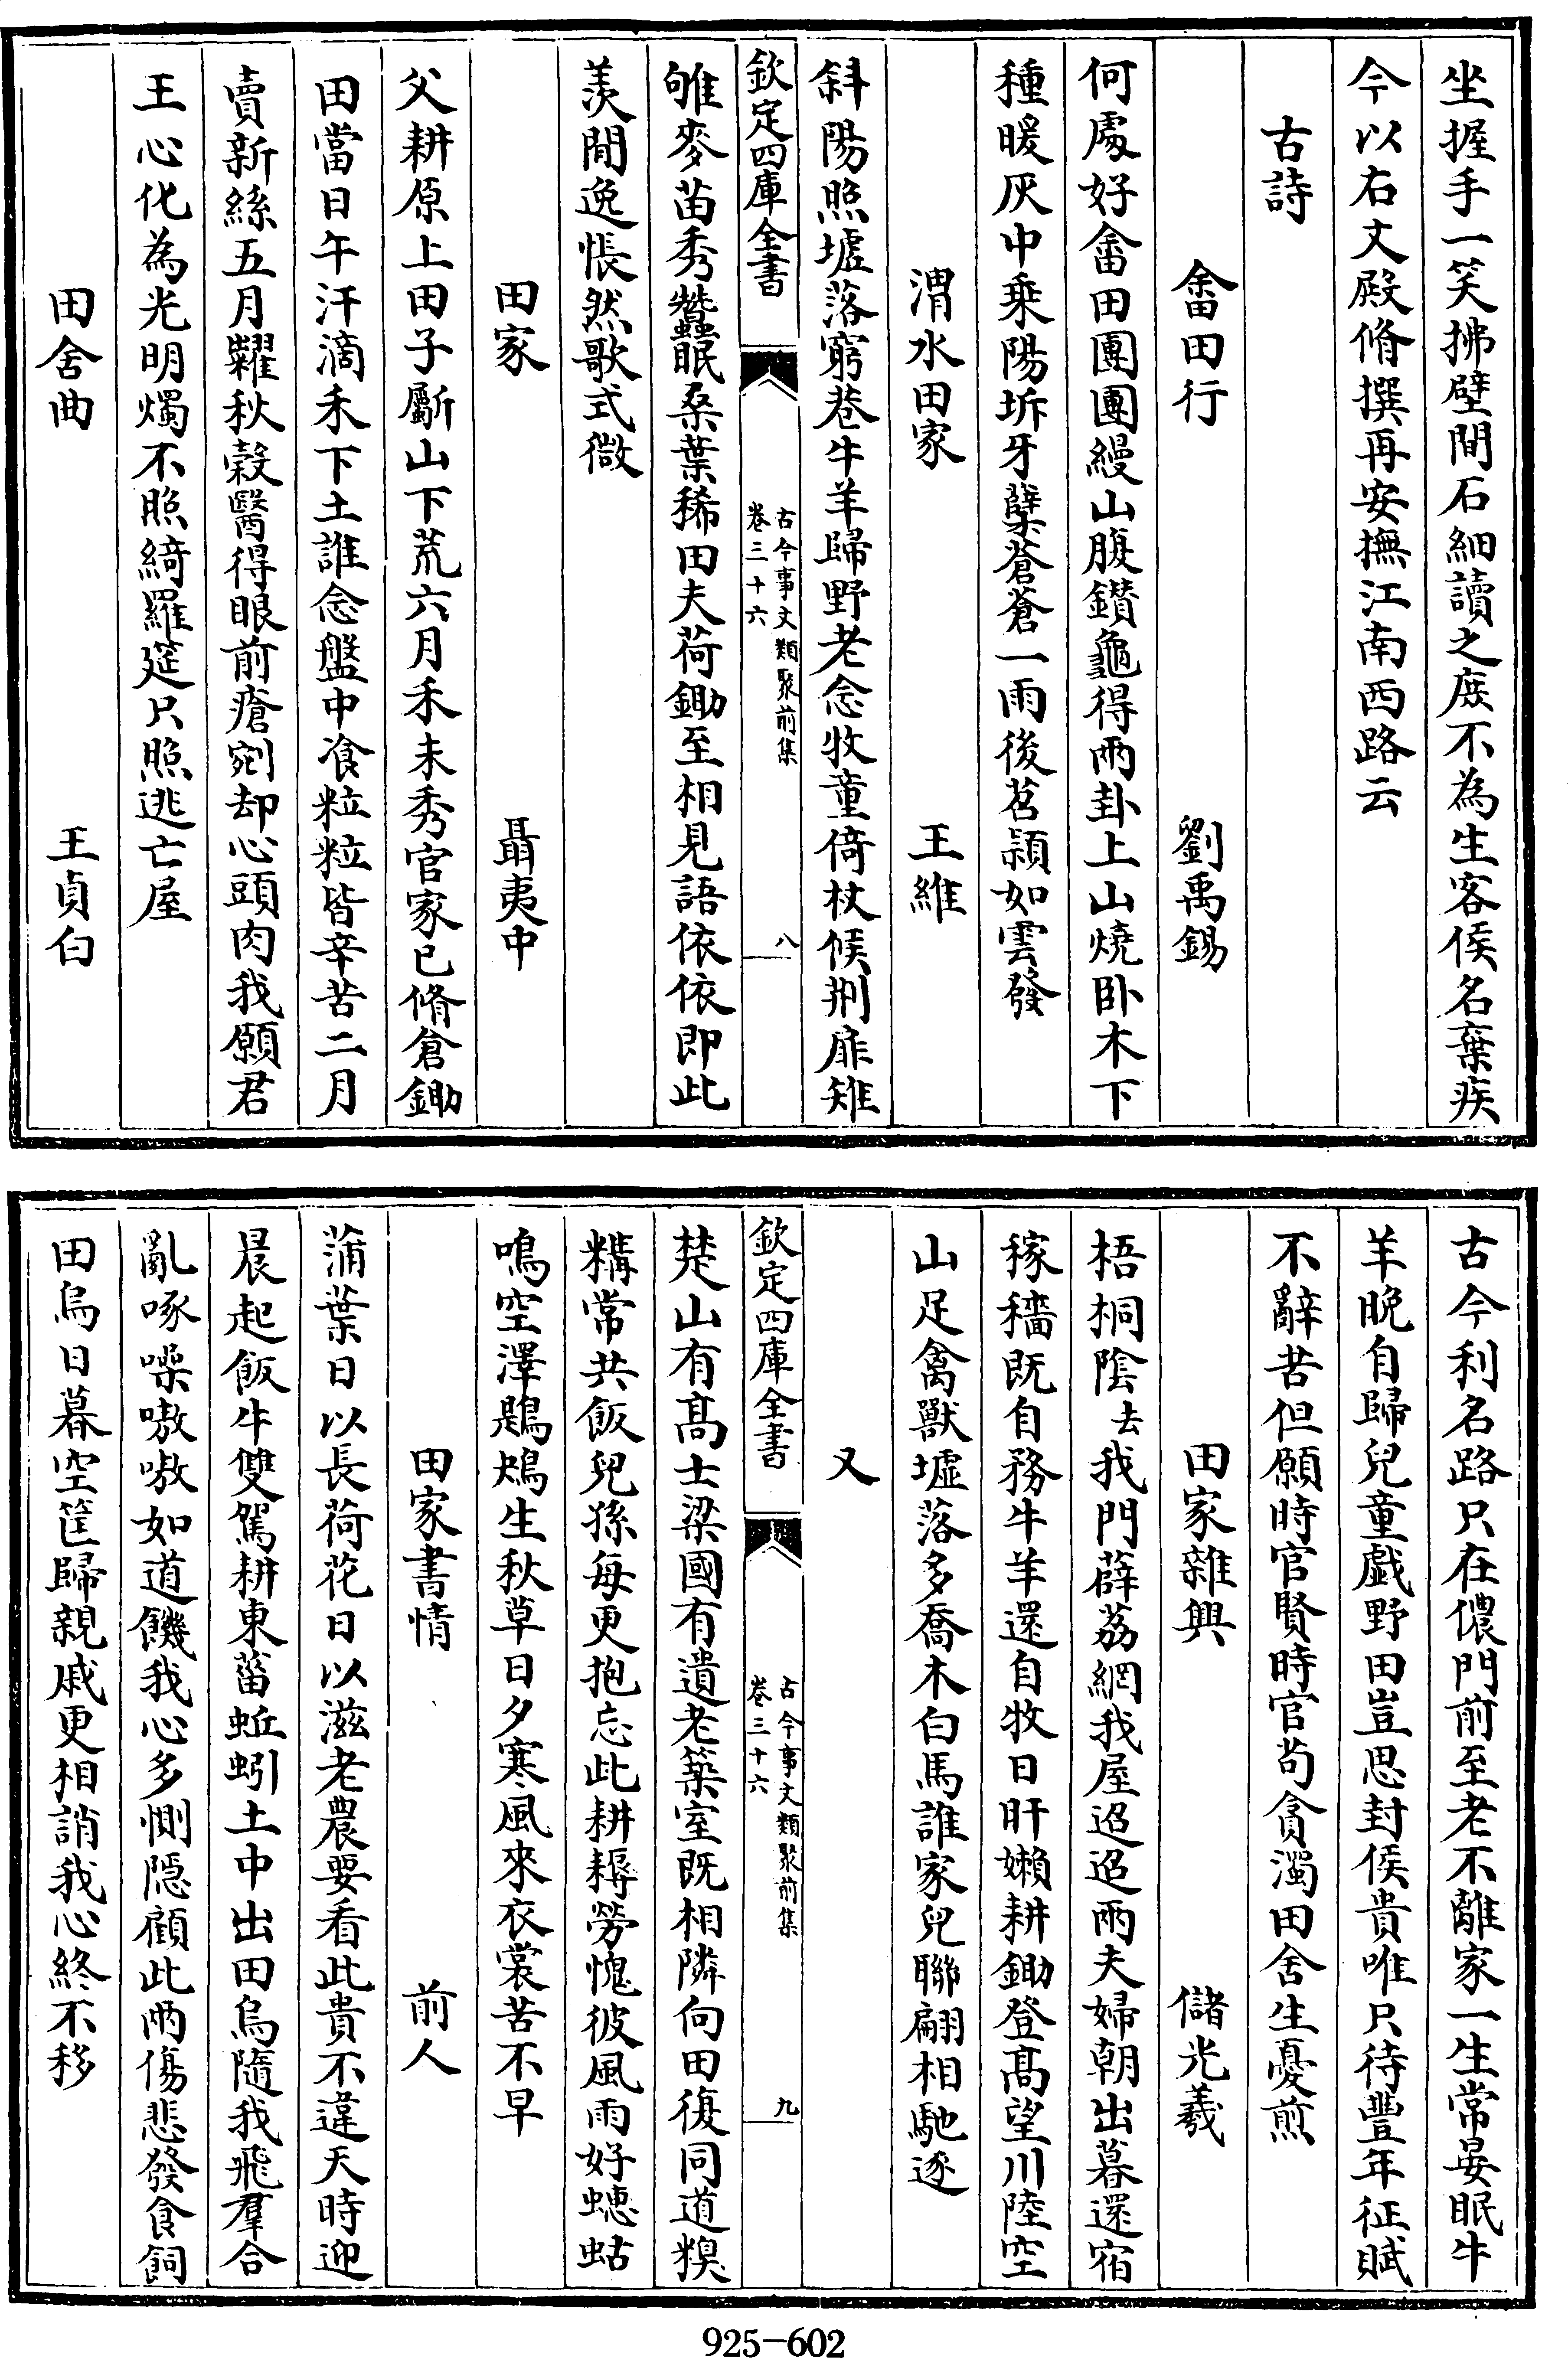 坐握手一笑拂壁間石細讀之庶不為生客侯名棄疾
今以右文殿脩撰再安撫江南西路云
古詩
畬田行 劉禹錫
何處好畬田團團縵山腹鑽龜得雨卦上山燒卧木下
種暖灰中乗陽坼牙蘖蒼蒼一雨後苕穎如雲發
渭水田家 王維
斜陽照墟落窮巷牛羊歸野老念牧童倚杖候荆扉雉
欽定四庫全書 古今事文類聚前集 卷三十六 八
雊麥苗秀蠶眠桑葉稀田夫荷鋤至相見語依依即此
羨閒逸悵然歌式微
田家 聶夷中
父耕原上田子劚山下荒六月禾未秀官家已脩倉鋤
田當日午汗滴禾下土誰念盤中飡粒粒皆辛苦二月
賣新絲五月糶秋穀醫得眼前瘡剜却心頭肉我願君
王心化為光明燭不照綺羅筵只照逃亡屋
田舍曲 王貞白
古今利名路只在儂門前至老不離家一生常晏眠牛
羊晚自歸兒童戱野田豈思封侯貴唯只待豐年征賦
不辭苦但願時官賢時官苟貪濁田舍生憂煎
田家雜興 儲光羲
梧桐隂去我門薜荔網我屋迢迢兩夫婦朝出暮還宿
稼穡既自務牛羊還自牧日旰嬾耕鋤登髙望川陸空
山足禽獸墟落多喬木白馬誰家兒聯翩相馳逐
又
欽定四庫全書 古今事文類聚前集 卷三十六 九
楚山有髙士梁國有遺老築室既相隣向田復同道糗
糒常共飯兒孫每更抱忘此耕耨勞愧彼風雨好蟪蛄
鳴空澤鶗鴂生秋草日夕寒風來衣裳苦不早
田家書情 前人
蒲葉日以長荷花日以滋老農要看此貴不違天時迎
晨起飯牛雙駕耕東菑蚯蚓土中出田烏隨我飛羣合
亂啄噪嗷嗷如道饑我心多惻隠顧此兩傷悲發食飼
田烏日暮空筐歸親戚更相誚我心終不移
925-602